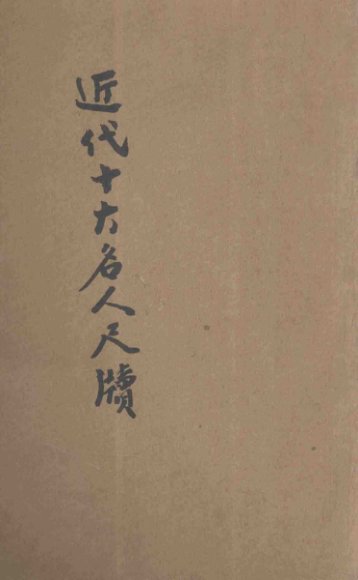 近代十大名人尺牘